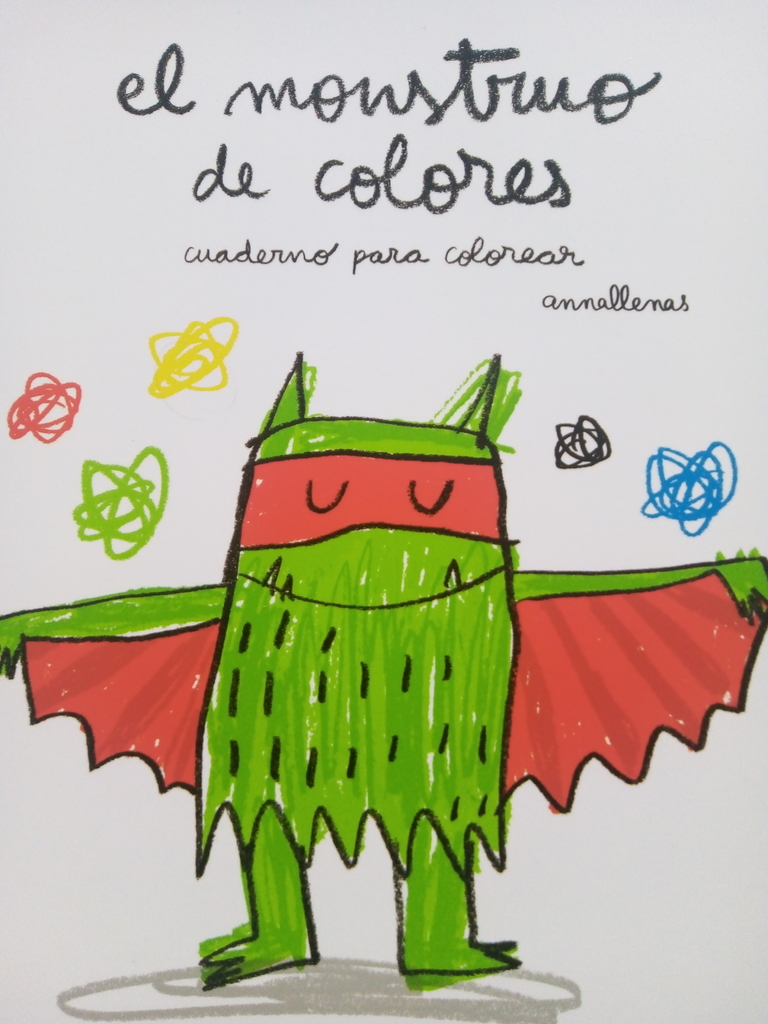 el monstruo
de colores
cuaderno para colorear
annallenas